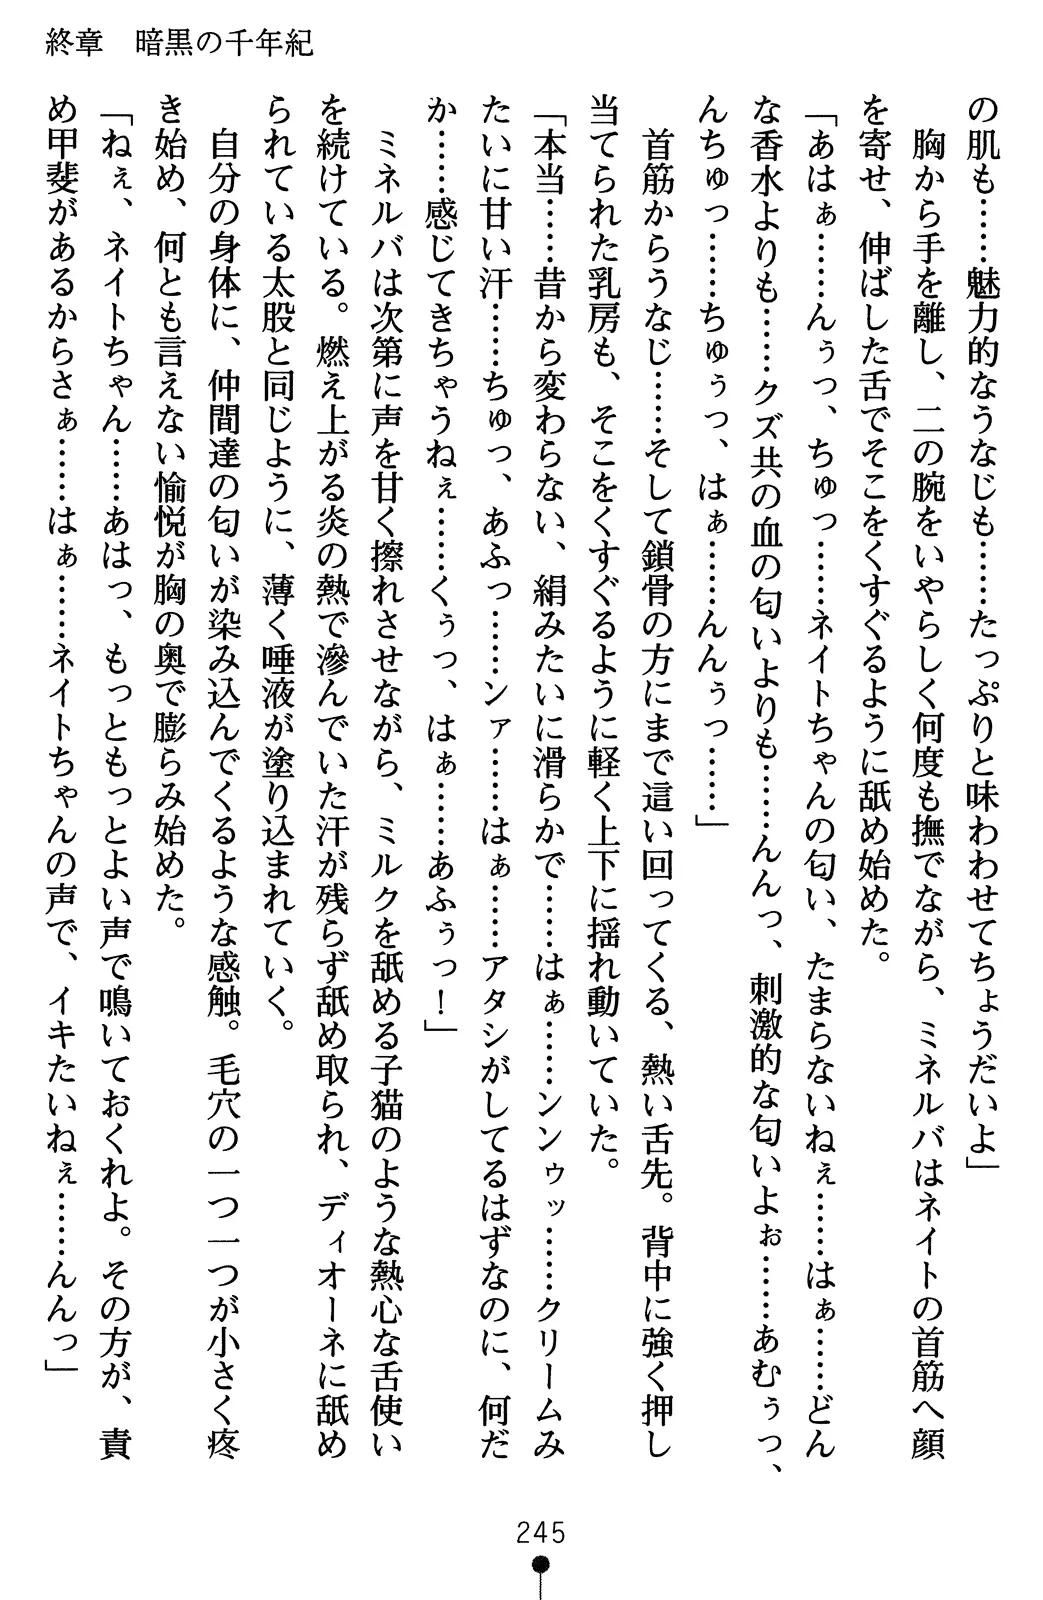 終章　暗黒の千年紀
の肌も……魅力的なうなじも……たっぷりと味わわせてちょうだいよ」
　胸から手を離し、二の腕をいやらしく何度も撫でながら、ミネルバはネイトの首筋へ顔
を寄せ、伸ばした舌でそこをくすぐるように舐め始めた。
「あはぁ……んぅっ、ちゅっ……ネイトちゃんの匂い、たまらないねぇ……はぁ……どん
な香水よりも……クズ共の血の匂いよりも……んんっ、刺激的な匂いよぉ……あむぅっ、
んちゅっ……ちゅぅっ、はぁ……んんぅっ……」
　首筋からうなじ……そして鎖骨の方にまで這い回ってくる、熱い舌先。背中に強く押し
当てられた乳房も、そこをくすぐるように軽く上下に揺れ動いていた。
「本当……昔から変わらない、絹みたいに滑らかで……はぁ……ンンゥッ……クリームみ
たいに甘い汗……ちゅっ、あふっ……ンァ……はぁ……アタシがしてるはずなのに、何だ
か……感じてきちゃうねぇ……くぅっ、はぁ……あふぅっ！」
　ミネルバは次第に声を甘く擦れさせながら、ミルクを舐める子猫のような熱心な舌使い
を続けている。燃え上がる炎の熱で滲んでいた汗が残らず舐め取られ、ディオーネに舐め
られている太股と同じように、薄く唾液が塗り込まれていく。
　自分の身体に、仲間達の匂いが染み込んでくるような感触。毛穴の一つ一つが小さく疼
き始め、何とも言えない愉悦が胸の奥で膨らみ始めた。
「ねぇ、ネイトちゃん……あはっ、もっともっとよい声で鳴いておくれよ。その方が、責
め甲斐があるからさぁ……はぁ……ネイトちゃんの声で、イキたいねぇ……んんっ」
245